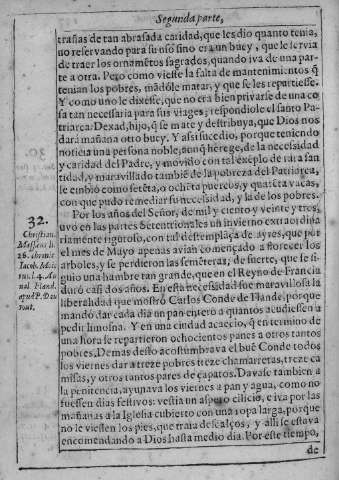 Segunda parte,
trañas de tan abrasada caridad, que les dio quanto tenia,
no reservando para su uso sino era un buey, que le servia
de traer los ornamẽtos sagrados, quando iva de una par-
te a otra. Pero como viesse la falta de mantenimientos q̃
tenian los pobres, mãdòle matar, y que se les repartiesse.
Y como uno le dixesse, que no era bien privarse de una co
sa tan necessaria para sus viages; respondiole el santo Pa-
triarca: Dexad, hijo, q̃ se mate y destribuya, que Dios nos
darà mañana otro buey. Y assi sucedio, porque teniendo
noticia una persona noble, aunq̃ herege, de la necessidad
y caridad del Padre, y movido con tal exẽplo de rara san
tidad, y maravillado tambiẽ de la pobreza del Patriarca,
le embiò como setẽta, o ochẽta puercos, y quarẽta vacas,
con que pudo remediar su necessidad, y la de los pobres.
32. Por los años del Señor, de mil y ciento y veinte y tres,
uvo en las partes Setentrionales un invierno extraordina
riamente riguroso, con tal destemplãça de ayres, que por
el mes de Mayo apenas avian començado a florecer los
arboles, y se perdieron las semẽteras; de suerte, que se si-
guio una hambre tan grande, que en el Reyno de Francia
durò casi dos años. En esta necessidad fue maravillosa la
liberalidad que mostrò Carlos Conde de Flãdes, porque
mandò dar cada dia un pan entero a quantos acudiessen a
pedir limosna. Y en una ciudad acaecio, q̃ en termino de
una hora se repartieron ochocientos panes a otros tantos
pobres. Demas desto acostumbrava el buẽ Conde todos
los viernes dar a treze pobres treze chamarretas, treze ca
misas, y otros tantos pares de çapatos. Davase tambien a
la penitencia, ayunava los viernes a pan y agua, como no
fuessen dias festivos: vestia un aspero cilicio, e iva por las
mañanas a la Iglesia cubierto con una ropa larga, porque
no le viessen los pies, que traia descalços, y alli se estava
encomendando a Dios hasta medio dia. Por este tiempo,
de
Christian.
Massæus li.
26. chronic
Jacob. Mei.
nal. Fland.